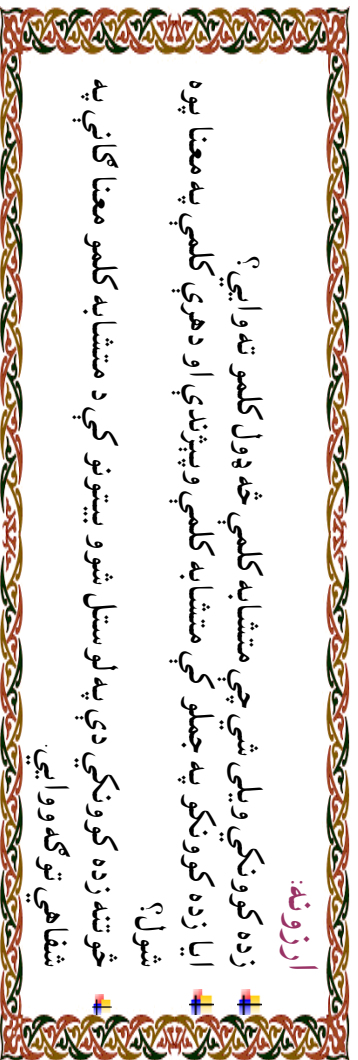 ارزونه:
زده کوونکي ويلی شي چې متشابه کلمې څه ډول کلمو ته وايي؟
ايا زده کوونکو په جملو کې متشابه کلمې وپېژندې او دهرې کلمې په معنا پوه
شول؟
څو تنه زده کوونکي دې په لوستل شوو بيتونو کې د متشابه کلمو معنا گانې په
شفاهي توگه ووايي.